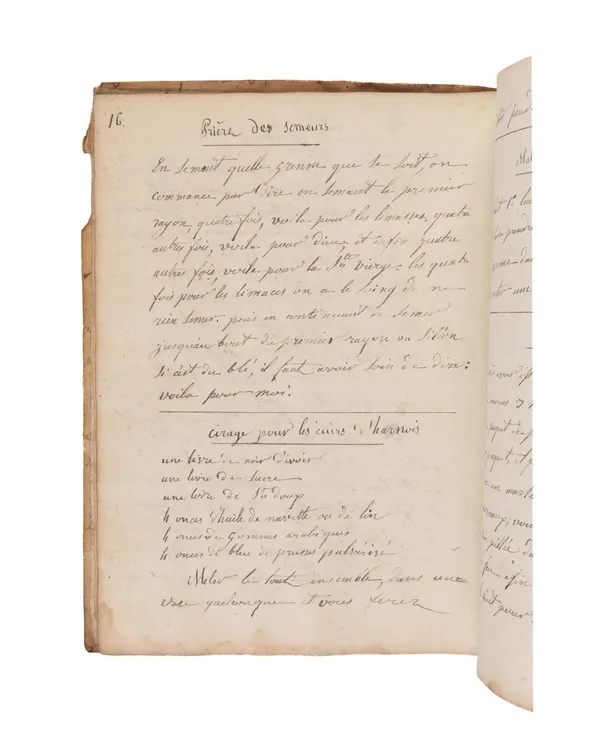 16.
Prière des semeurs
En semant quelle grenne que se soit, on
commance par dire en semant le premier
rayon, quatre fois, voila pour les limasses, quatre
autres fois, voila pour dieu, et enfin quatre
autres fois, voila pour la Ste vierge. les quatre
fois pour les limaces on a le soing de ne
rein semer. puis en continuant de semer
jusqu'au bout de premier rayon ou sillon
si c'est du blé, il faut avoir soin de dire:
voila pour moi.
cirage pour les cuirs d'harnois
une livre de noir d'ivoir
une livre de sucre
une livre de doux
4 onces d'huile de navette ou de lin
4 onces de gommes arabiques
4 onces de bleu de prusse pulvérisé
Meler le tout ensemble, dans une
vase quelconque et vous ferez